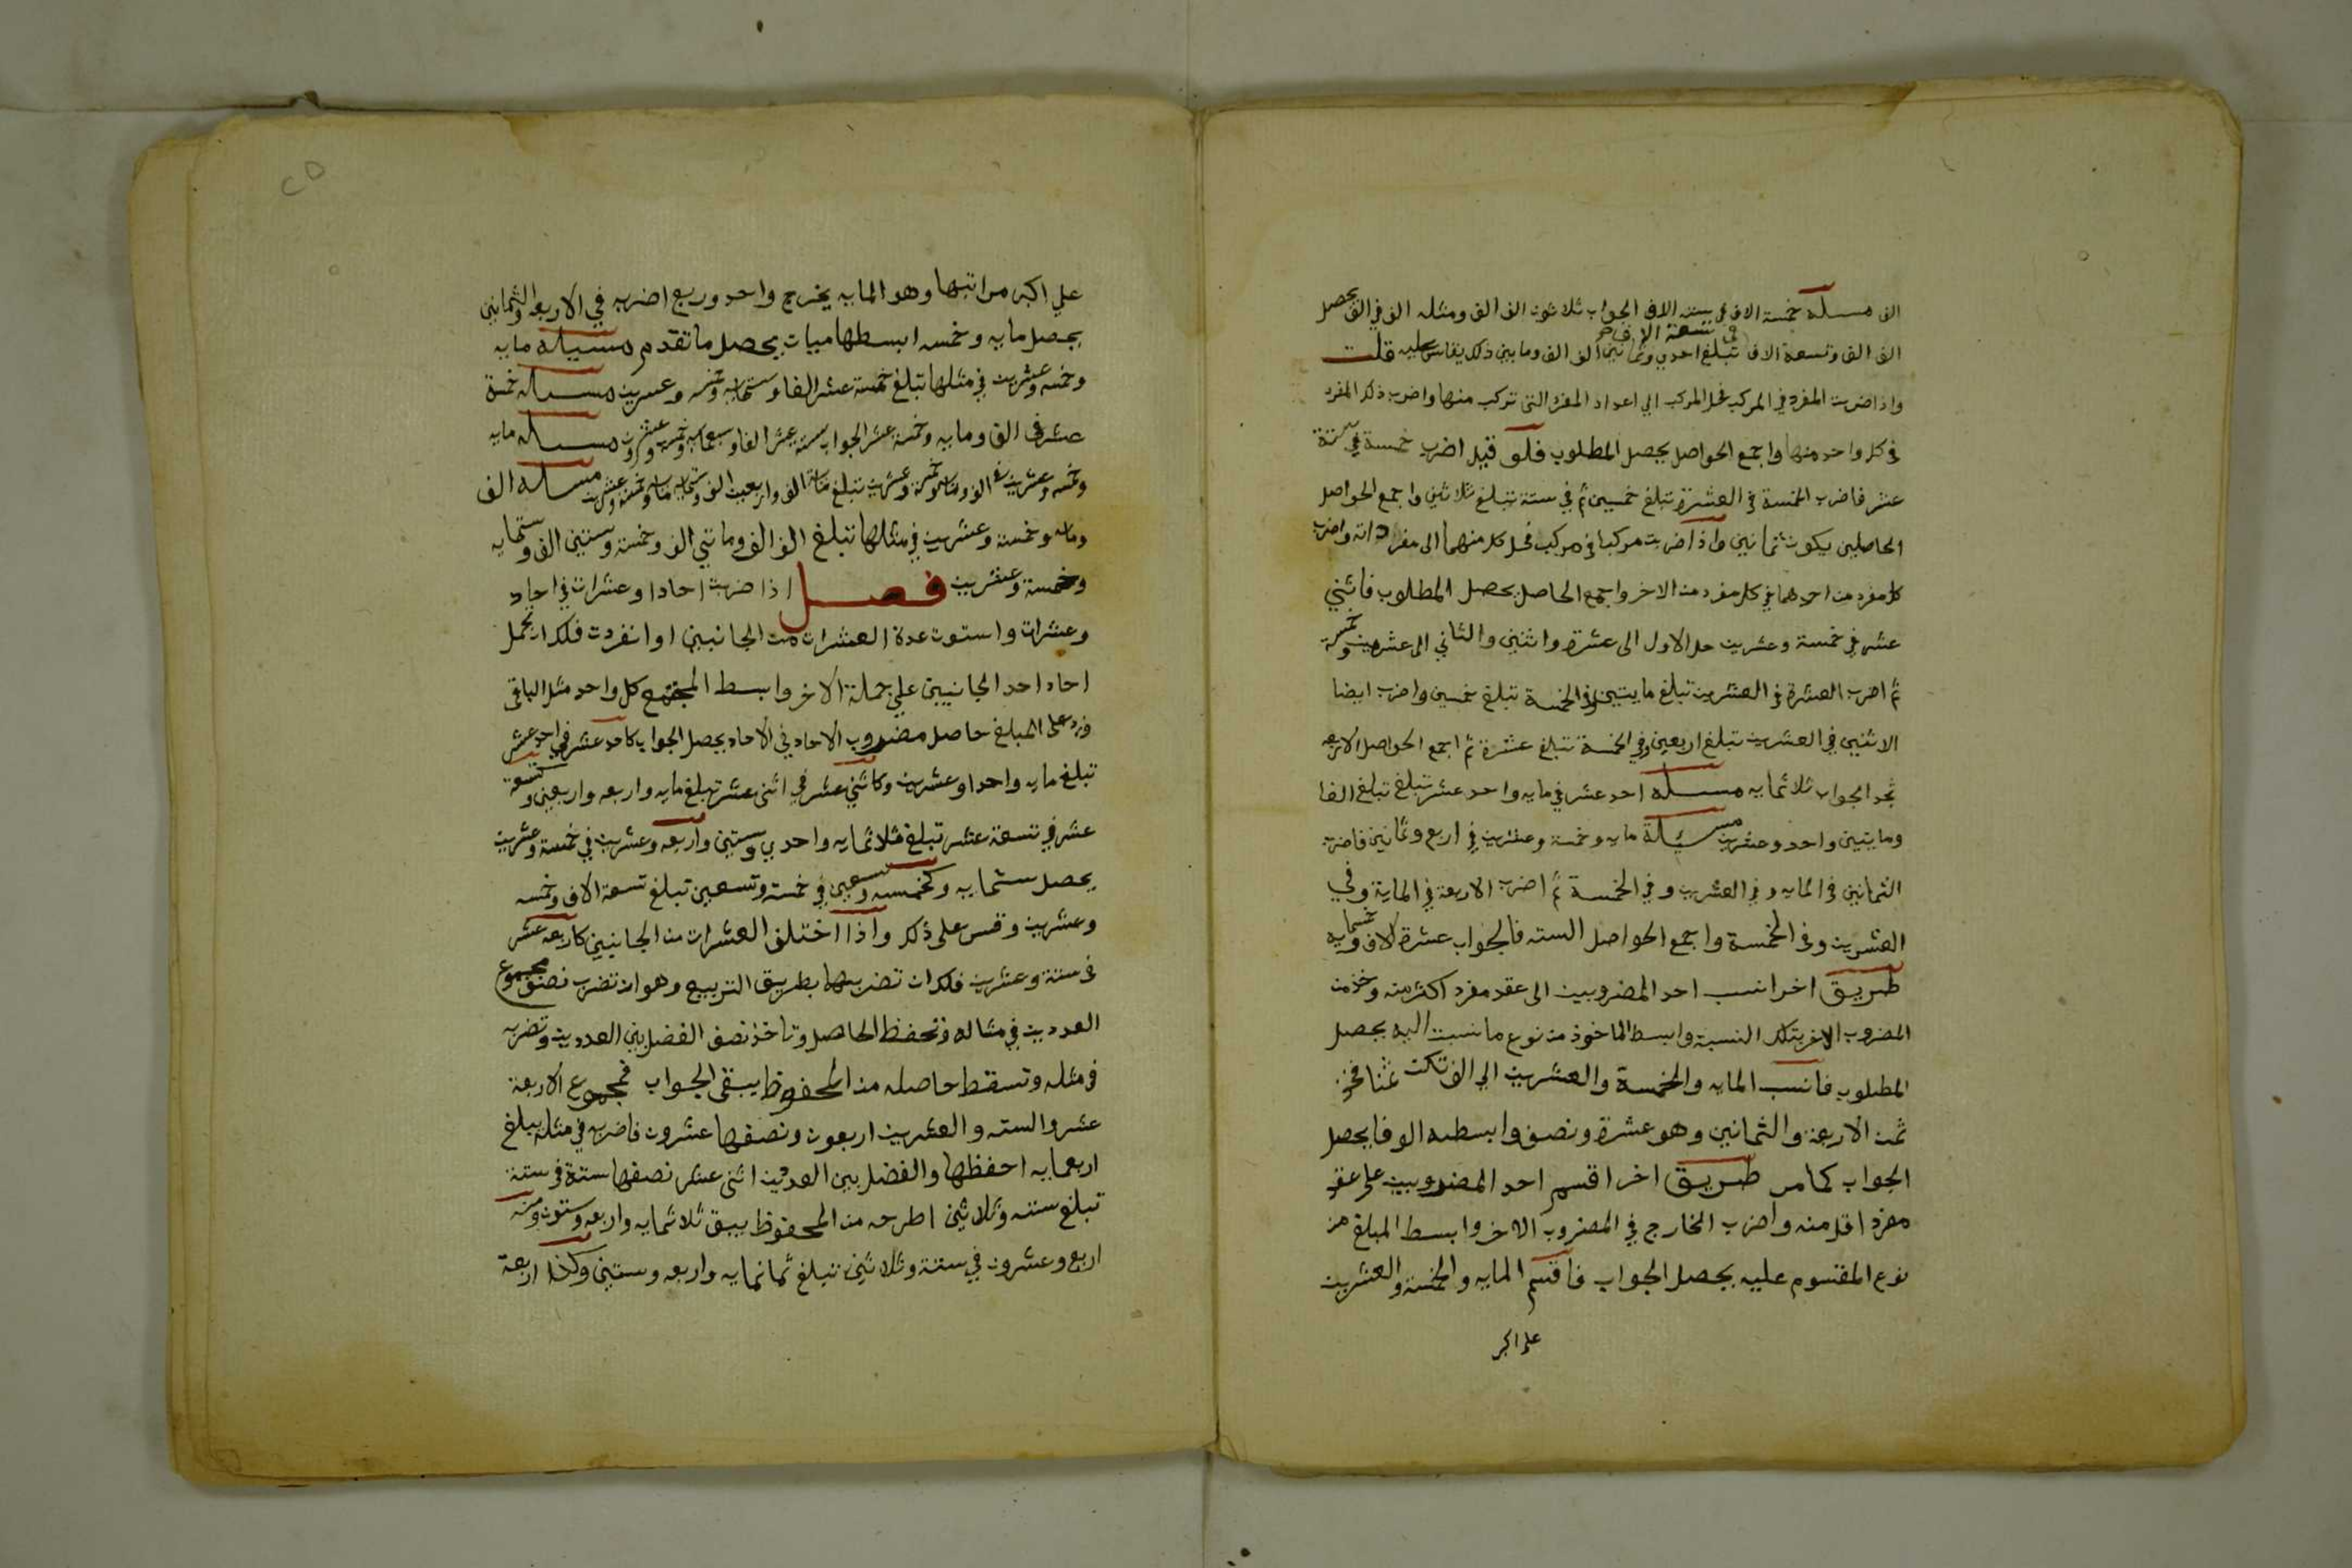 الف مسىله خمسة الاف في ستة الاف الجواب ثلاثون الف الف ومثله الف في الف يحصل
الف الف وتسعة الاف في تسعة الاف تبلغ احدي وثمانين الف الف وما بين ذلك يقاس عليه قلت
واذا ضربت المفرد في المركب فحل المركب الي اعداد المفرد التي تركب منها واضرب ذلك المفرد
في كل واحد منها واجمع الحواصل يحصل المطلوب فلو قيل اضرب خمسة في ستة
عشر فاضرب الخمسة في العشرة تبلغ خمسين ثم في ستة تبلغ ثلاثين واجمع الحواصل
الحاصلين يكون ثمانين واذا ضربت مركبا في مركب فحل كلا منهما الى مفرداته واضرب
كل مفرد من احدهما في كل مفرد من الاخر واجمع الحاصل يحصل المطلوب فاثني
عشر في خمسة وعشرين حل الاول الى عشرة واثنين والثاني الى عشرين وخمسة
ثم اضرب العشرة في العشرين تبلغ مايتين وفي الخمسة تبلغ خمسين واضرب ايضا
الاثنين في العشرين تبلغ اربعين وفي الخمسة تبلغ عشرة ثم اجمع الحواصل الاربعه
تجد الجواب ثلاثمايه مسىله احد عشر في مايه واحد عشر تبلغ تبلغ الفا
ومايتين واحد وعشرين مسئلة مايه وخمسة وعشرين في اربع وثمانين فاضرب
الثمانين في المايه وفي العشرين وفي الخمسة ثم اضرب الاربعة في الماية وفي
العشرين وفي الخمسة واجمع الحواصل السته فالجواب عشرة الاف وخمسمايه
طريق اخر انسب احد المضروبين الى عقد مفرد اكثر منه وخذ من
المضروب الاخر بتلك النسبة وابسط الماخوذ من نوع ما نسبت اليه يحصل
المطلوب فانسب المايه والخمسة والعشرين الي الف تكن ثمنا فخذ
ثمن الاربعة والثمانين وهو عشرة ونصف وابسطه الوفا يحصل
الجواب كما مر طريق اخر اقسم احد المضروبين على عقد
مفرد اقل منه واضرب الخارج في المضروب الاخر وابسط المبلغ من
نوع المقسوم عليه يحصل الجواب فاقسم المايه والخمسة والعشرين
على اكبر
علي اكبر مراتبها وهو المايه يخرج واحد وربع اضربه في الاربعه والثمانين
يحصل مايه وخمسه ابسطها ميات يحصل ما تقدم مسيله مايه
وخمسه وعشرين في مثلها تبلغ خمسة عشر الفا وستمايه وخمسه وعشرين مسىله خمسة
عشر في الف ومايه وخمسة عشر الجواب ستة عشر الفا وسبعمايه وخمسه وعشرون مسىله مايه
وخمسه وعشرين في الف ومايه وخمسة وعشرين تبلغ مائة الف واربعين الف وستمايه وخمسة وعشرين مسىله الف
ومايه وخمسة وعشرين في مثلها تبلغ الف الف ومائتي الف وخمسة وستين الف وستمايه
وخمسة وعشرين فصل اذا ضربت احادا وعشرات في احاد
وعشرات واستوت عدة العشرات من الجانبين او انفردت فلك ان تحمل
احاد احد الجانبين علي جملة الاخر وابسط المجتمع كل واحد مثل الباقي
وزد على المبلغ حاصل مضروب الاحاد في الاحاد يحصل الجواب كاحد عشر في احد عشر
تبلغ مايه واحدا وعشرين وكاثني عشر في اثني عشر تبلغ مايه واربعه واربعين وكتسعة
عشر في تسعة عشر تبلغ ثلاثمايه واحدي وستين واربعه وعشرين في خمسة وعشرين
يحصل ستمايه وكخمسه وتسعين في خمسة وتسعين تبلغ تسعة الاف وخمسه
وعشرين وقس على ذلك واذا اختلف العشرات من الجانبين كاربعه عشر
في ستة وعشرين فلك ان تضربها بطريق التربيع وهو ان تضرب نصف مجموع
العددين في مثاله وتحفظ الحاصل وتاخذ نصف الفضل بين العددين وتضربه
في مثله وتسقط حاصله من المحفوظ يبقى الجواب فمجموع الاربعة
عشر والسته والعشرين اربعون ونصفها عشرون فاضربه في مثله يبلغ
اربعمايه احفظها والفضل بين العددين اثني عشر نصفها ستة في ستة
تبلغ ستة وثلاثين اطرحه من المحفوظ يبق ثلاثمايه واربعه وستون ومنه
اربع وعشرون في ستة وثلاثين تبلغ ثمانمايه واربعه وستين وكذا اربعة